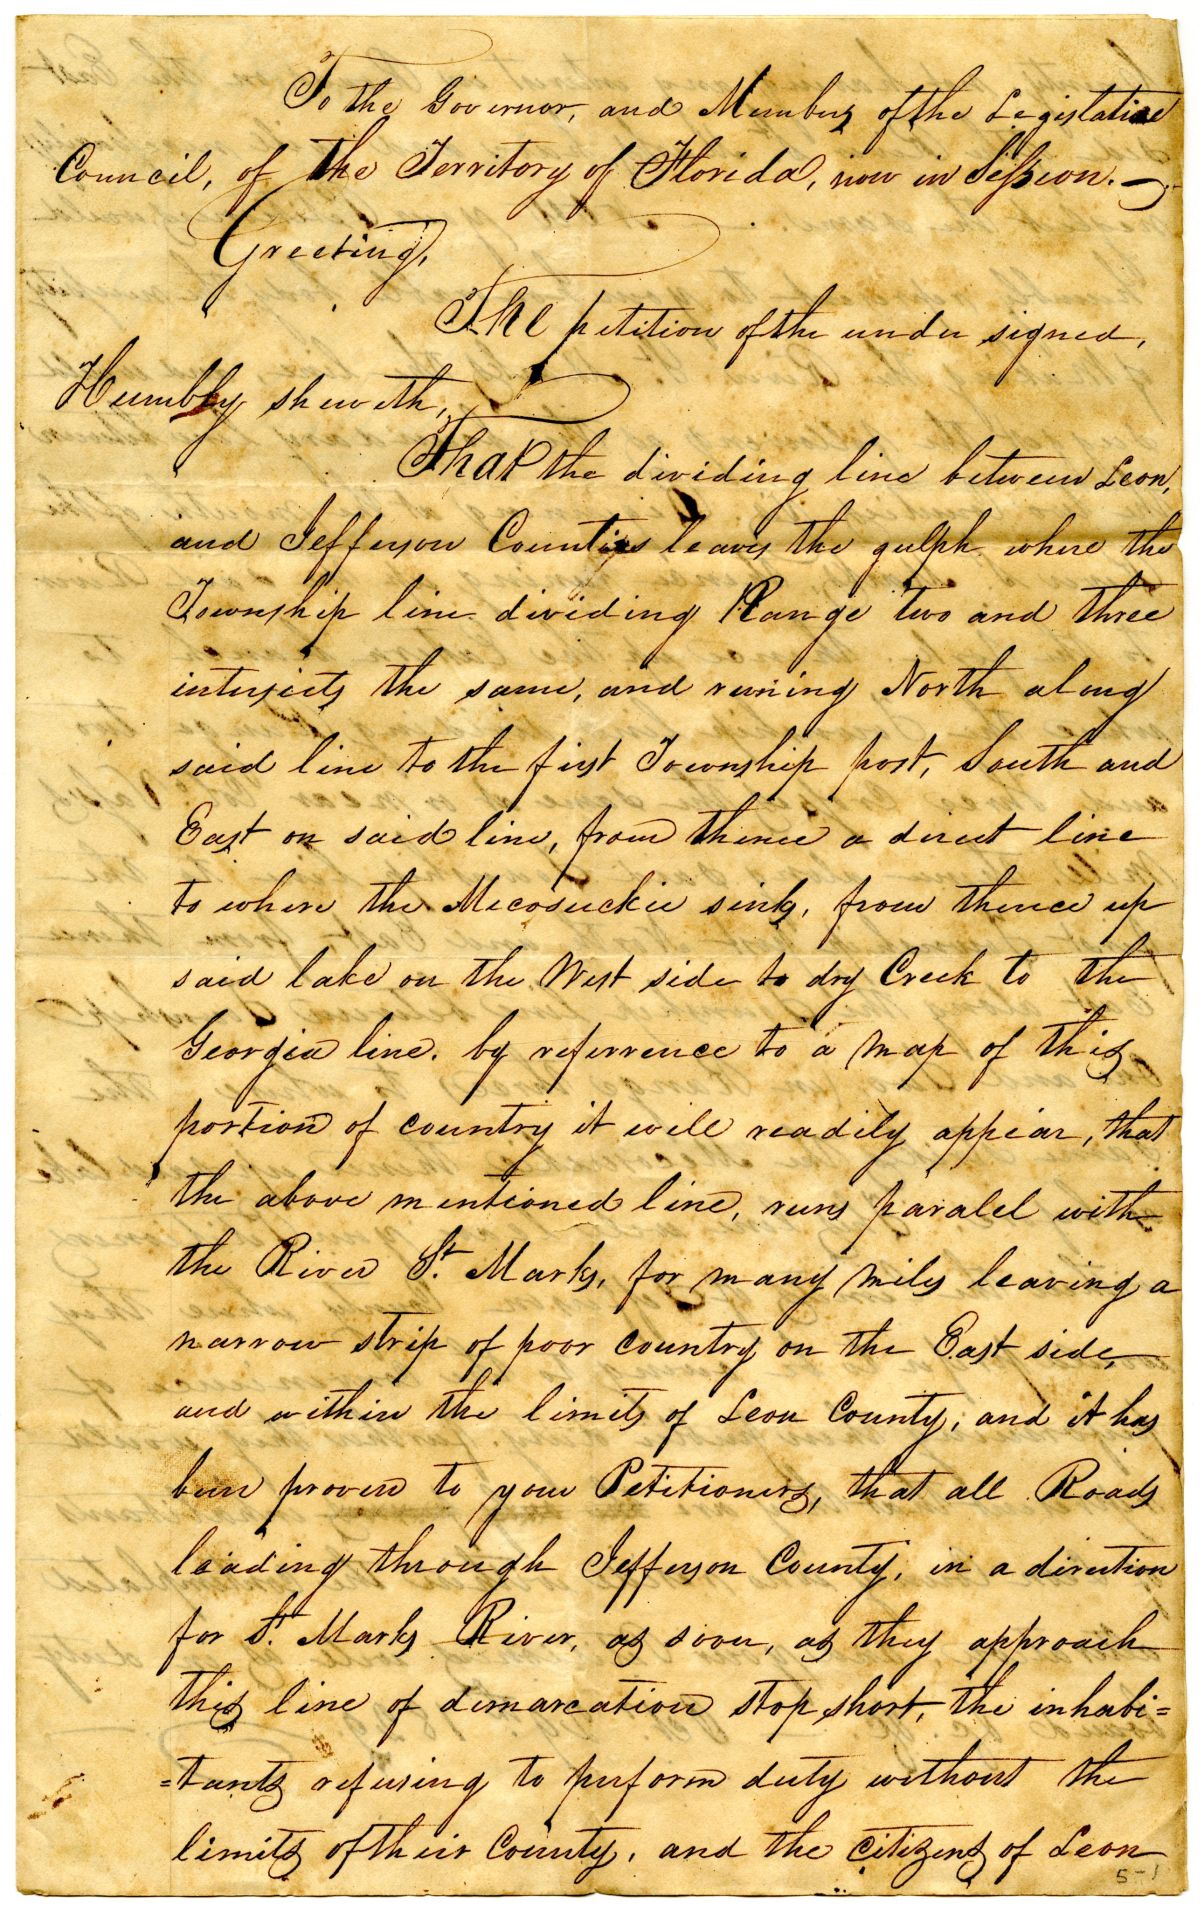 To the Governor, and Members of the Legislative
Council, of the Territory of Florida, now in Session.
Greeting,
The petition of the under signed,
Humbly sheweth,
That the dividing line between Leon,
and Jefferson Counties leaves the gulph where the
Township line dividing Range two and three
intersects the same, and runing North along
said line to the first Township post, South and
East on said line, from thence a direct line
to where the Micosuckie sinks, from thence up
said lake on the West side to dry Creek to the
Georgia line. by referrence to a map of this
portion of country it will readily appear, that
the above mentioned line, runs paralel with
the River St. Marks, for many miles leaving a
narrow strip of poor country on the East side,
and within the limits of Leon County, and it has
been proven to your Petitioners, that all Roads
leading through Jefferson County, in a direction
for St. Marks River, as soon, as they approach
this line of demarcation stop short, the inhabi=
=tants refusing to perform duty without the
limits of their County, and the citizens of Leon
5-1